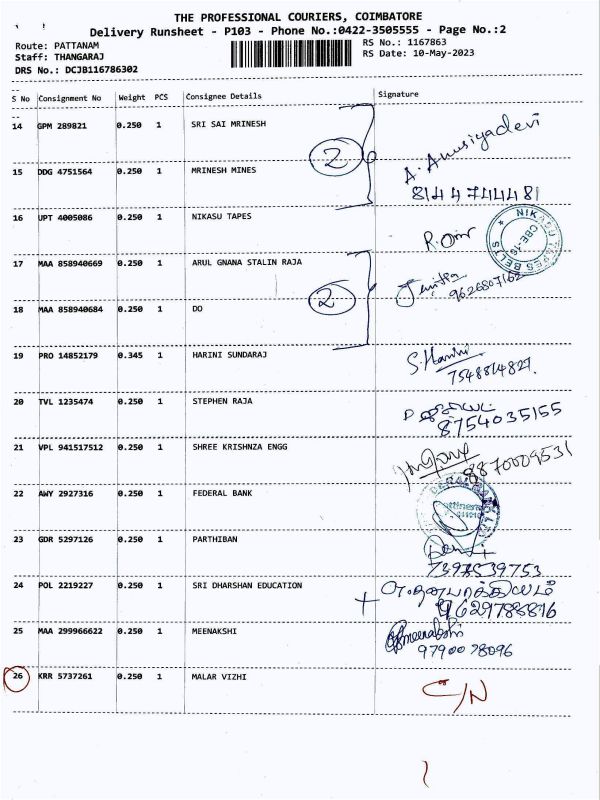 THE PROFESSIONAL COURIERS, COIMBATORE
Delivery Runsheet - P103 - Phone No.:0422-3505555 - Page No.:2
Route: PATTANAM RS No.: 1167863
Staff: THANGARAJ RS Date: 10-May-2023
DRS No.: DCJB116786302
S No Consignment No Weight PCS Consignee Details Signature
14 GPM 289821 0.250 1 SRI SAI MRINESH
2 A. Anusiyadevi
15 DDG 4751564 0.250 1 MRINESH MINES
8144744481
16 UPT 4005086 0.250 1 NIKASU TAPES
NIKASU TAPES BELTS
17 MAA 858940669 0.250 1 ARUL GNANA STALIN RAJA
2 9626807162
18 MAA 858940684 0.250 1 DO
19 PRO 14852179 0.345 1 HARINI SUNDARAJ S. Harini
7548814827.
20 TVL 1235474 0.250 1 STEPHEN RAJA
8754035155
21 VPL 941517512 0.250 1 SHREE KRISHNZA ENGG
8870009531
22 AWY 2927316 0.250 1 FEDERAL BANK
23 GDR 5297126 0.250 1 PARTHIBAN
7397539753
24 POL 2219227 0.250 1 SRI DHARSHAN EDUCATION
9629788816
25 MAA 299966622 0.250 1 MEENAKSHI Meenakshi
9790078096
26 KRR 5737261 0.250 1 MALAR VIZHI C/N